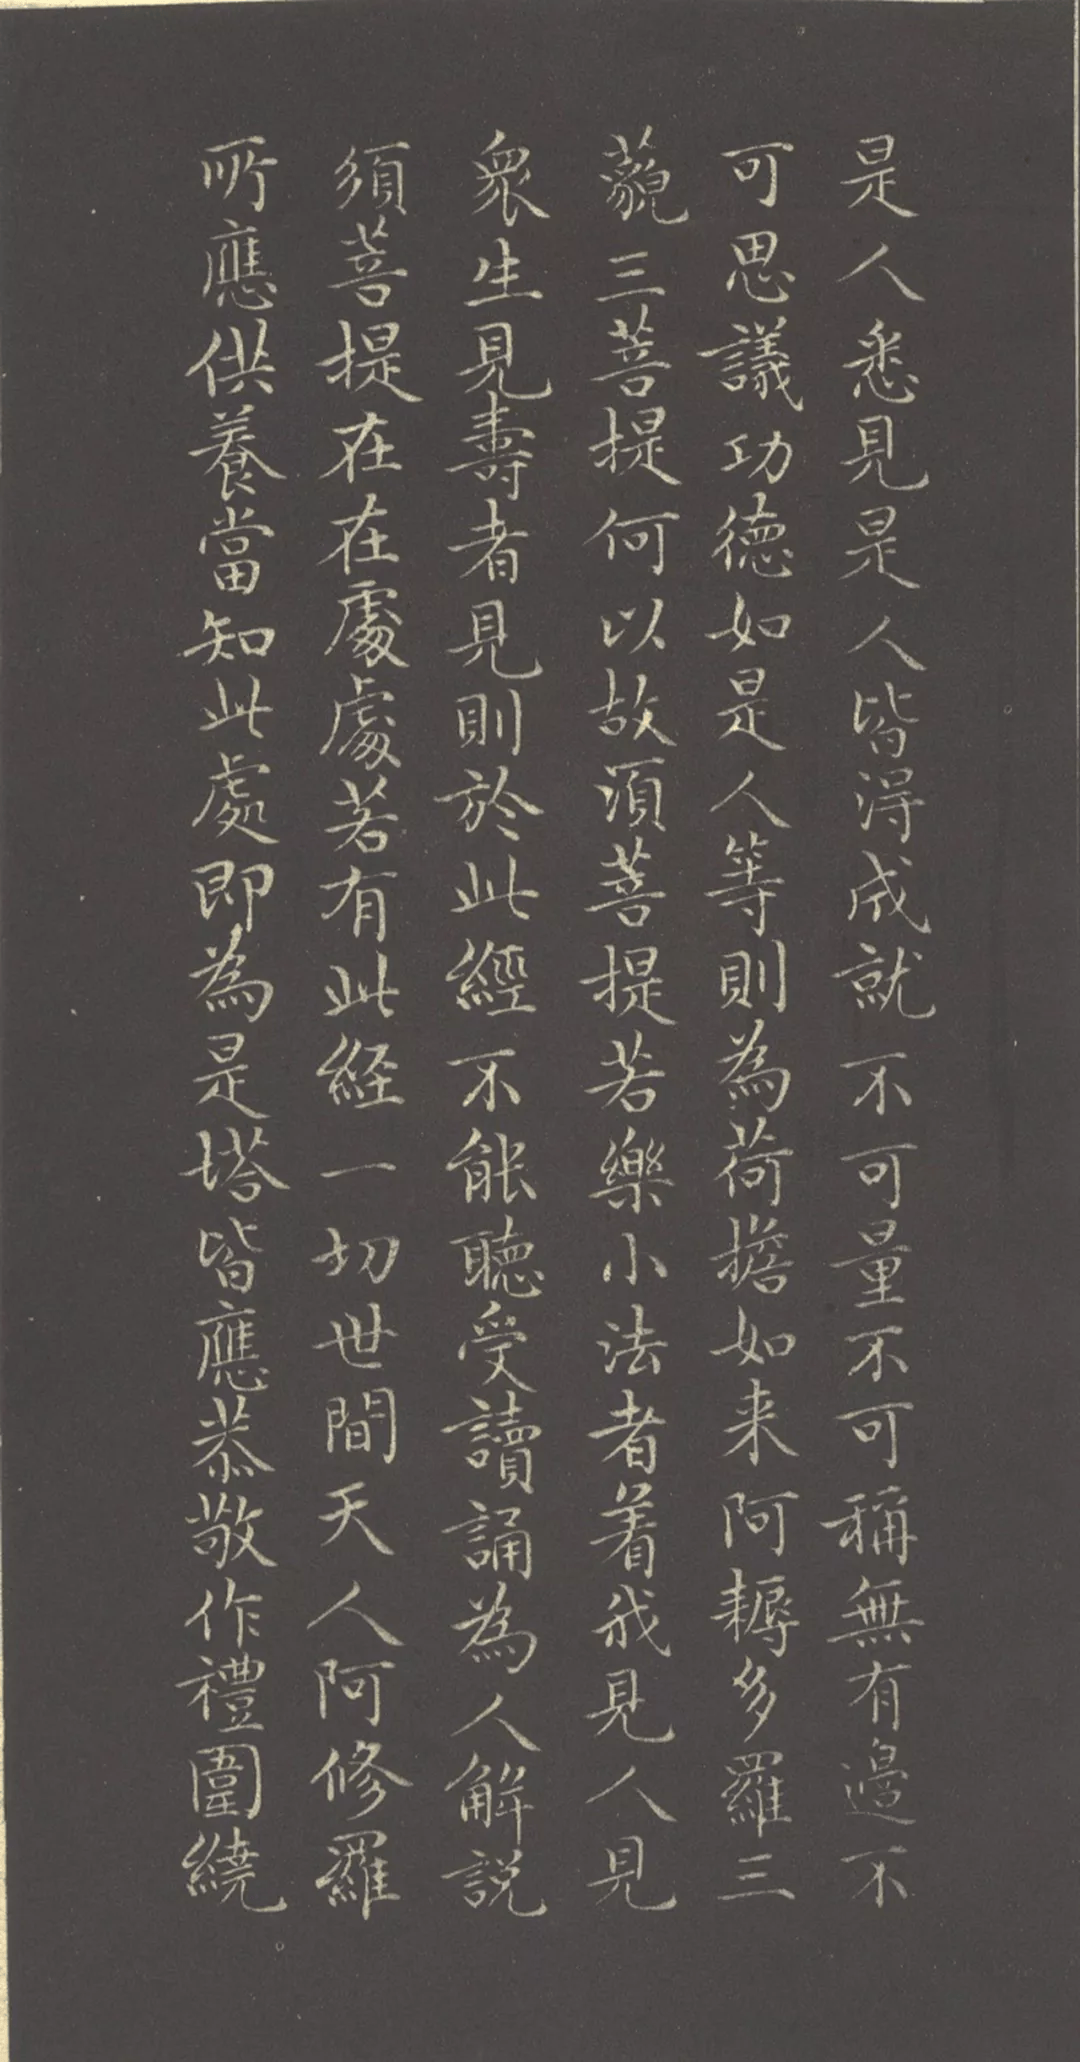 是人悉見是人皆得成就不可量不可稱無有邊不
可思議功德如是人等則為荷擔如来阿耨多羅三
藐三菩提何以故須菩提若樂小法者着我見人見
衆生見壽者見則於此經不能聽受讀誦為人解説
須菩提在在處處若有此経一切世間天人阿修羅
所應供養當知此處即為是塔皆應恭敬作禮圍繞